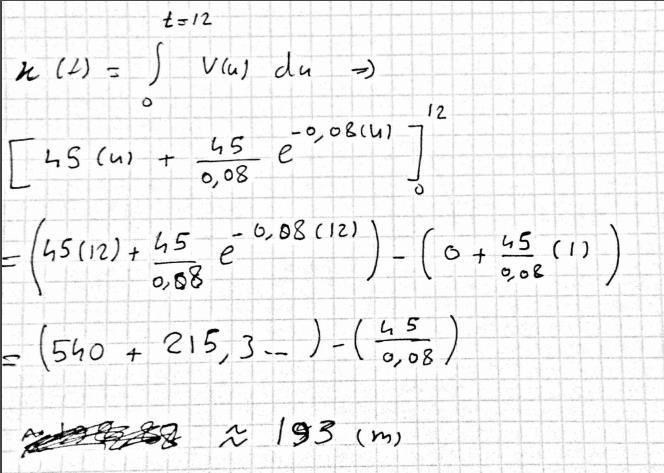 t=12
x(t) = ∫ V(u) du ⇒
0
[45(u) + 45/0,08 e^-0,08(u)]_0^12
= (45(12) + 45/0,08 e^-0,08(12)) - (0 + 45/0,08 (1))
= (540 + 215,3...) - (45/0,08)
≈ 193 (m)